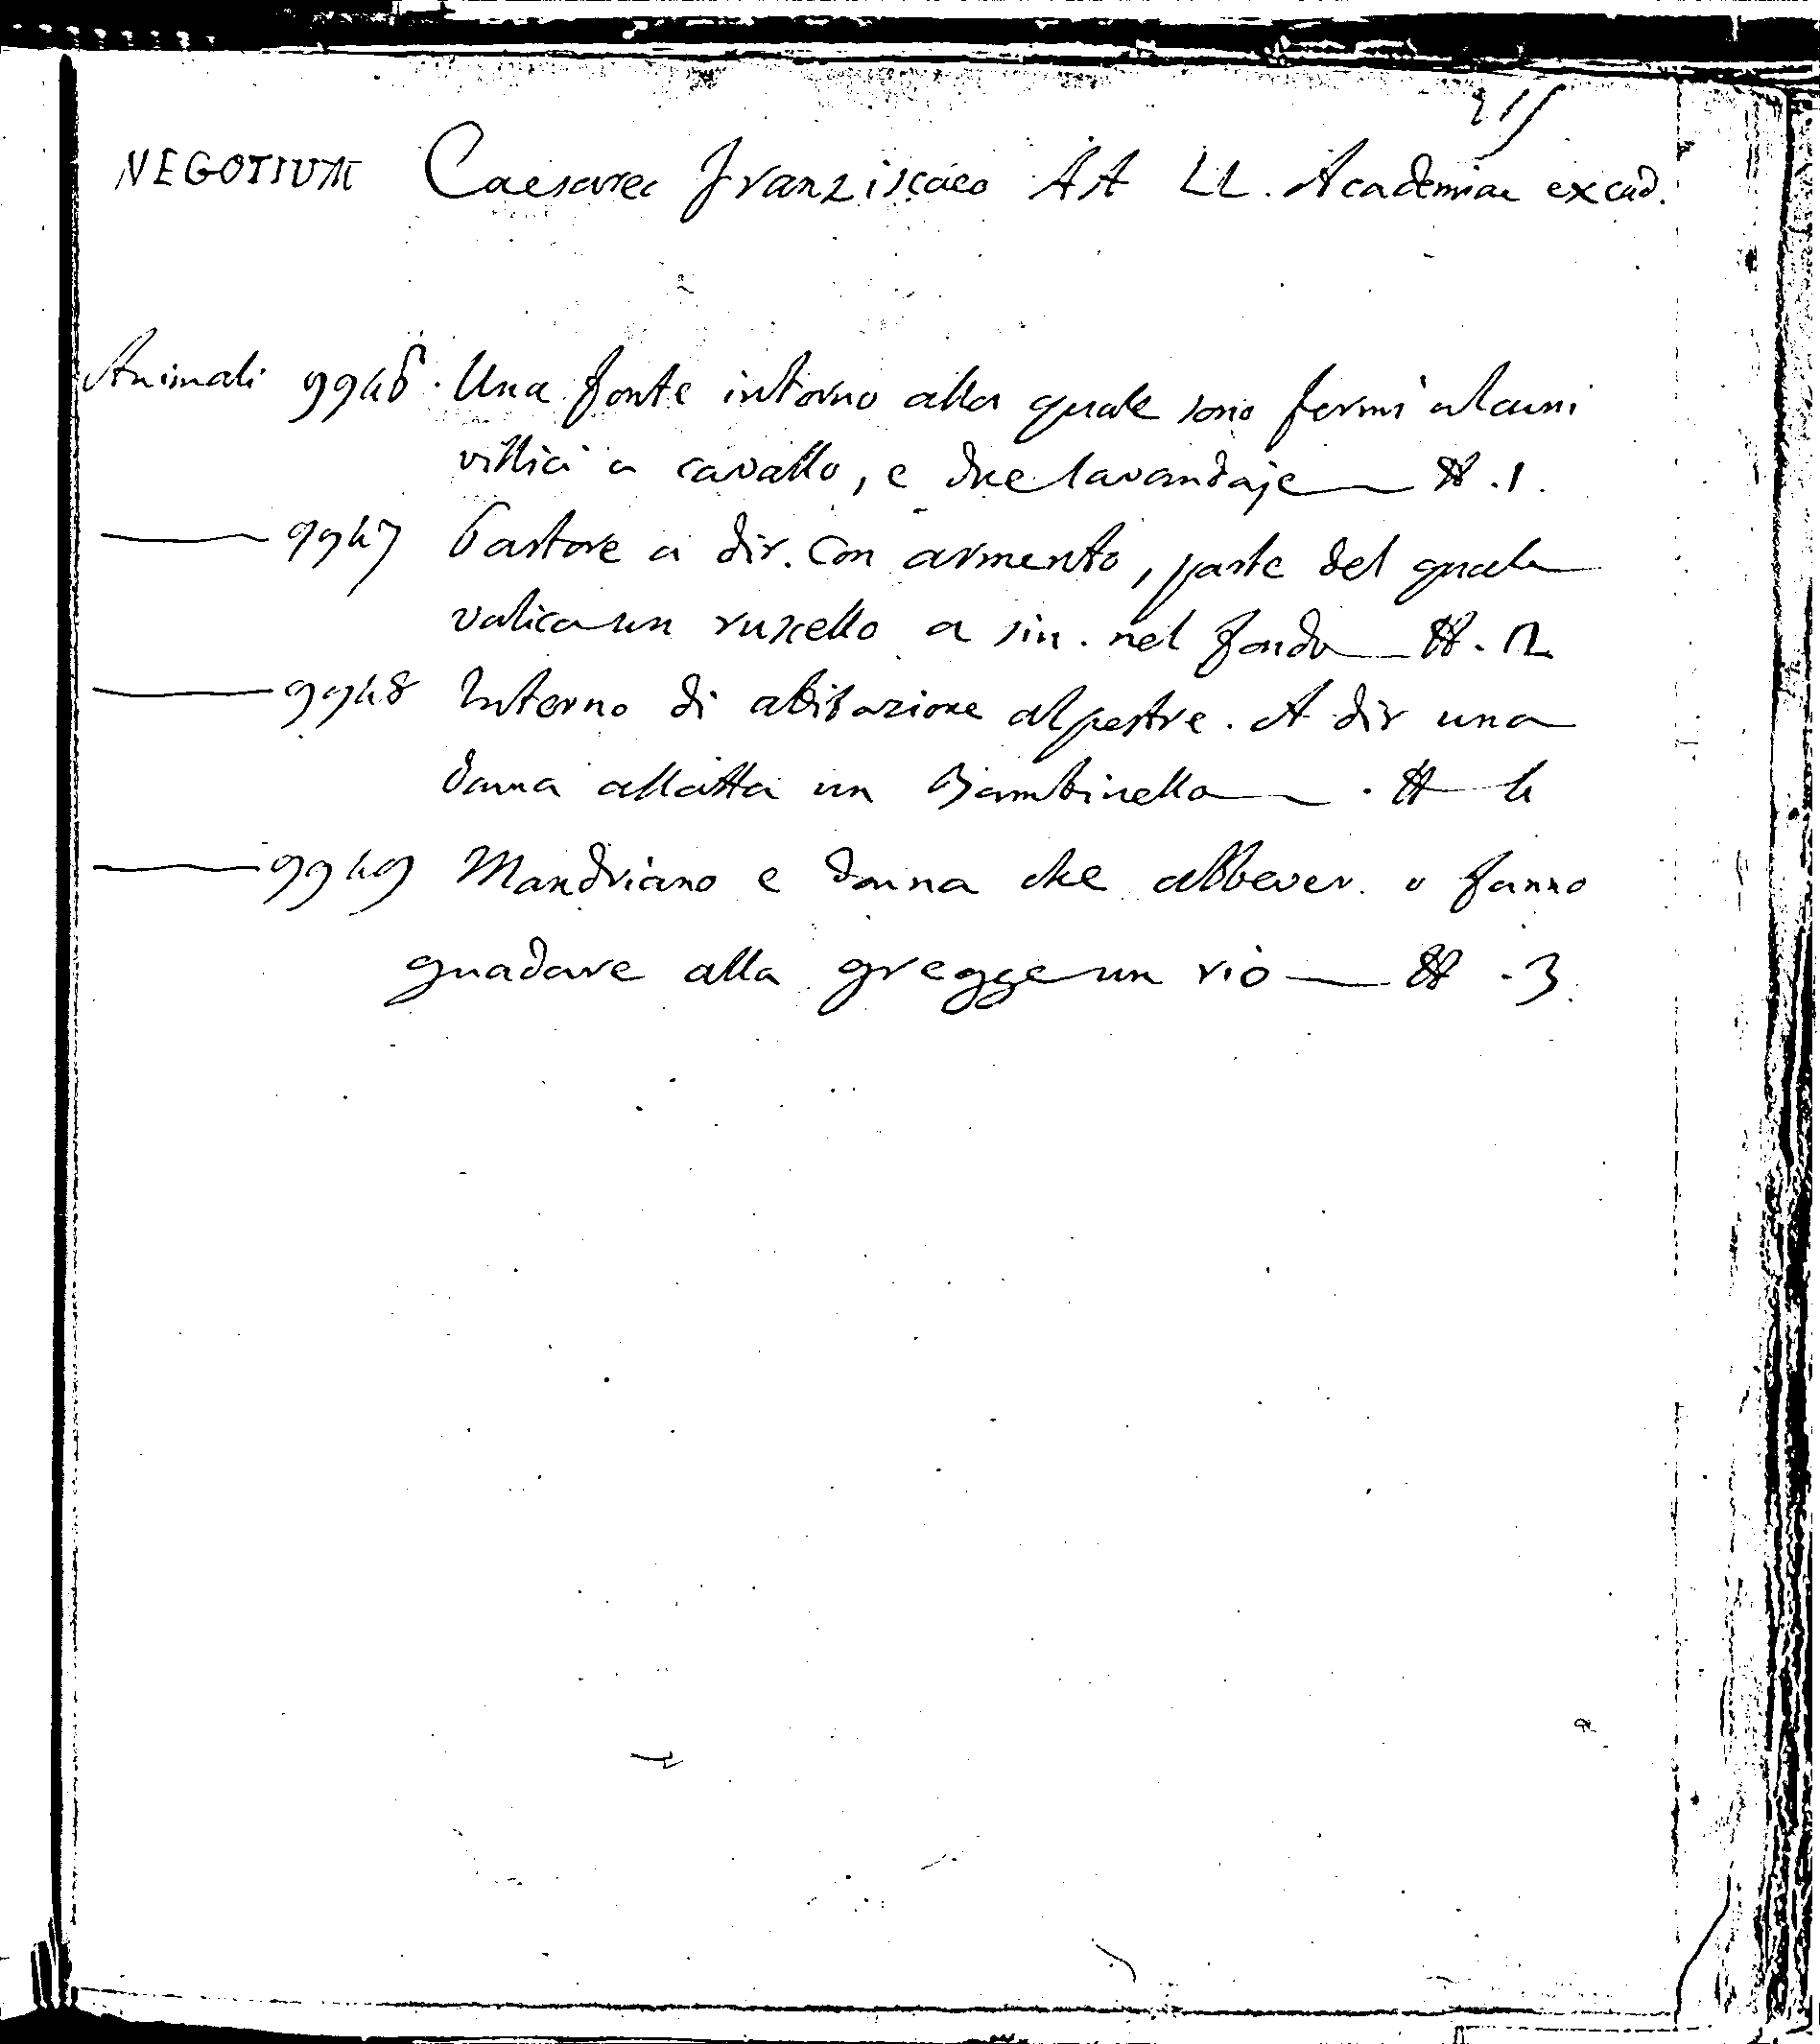 215
NEGOTIUM Caesarea Franziscaeo AA LL. Academiae excud.
Animali 9946. Una fonte intorno alla quale sono fermi alcuni
villici a cavallo, e due lavandaje — #.1.
— 9947 Pastore a dir. con armento, parte del quale
valica un ruscello a sin. nel fondo — #.2
— 9948 Interno di abitazione alpestre. A dir una
donna allatta un Bambinello — . # 4
— 9949 Mandriano e donna che abbever. o fanno
guadare alla gregge un rio — # .3.